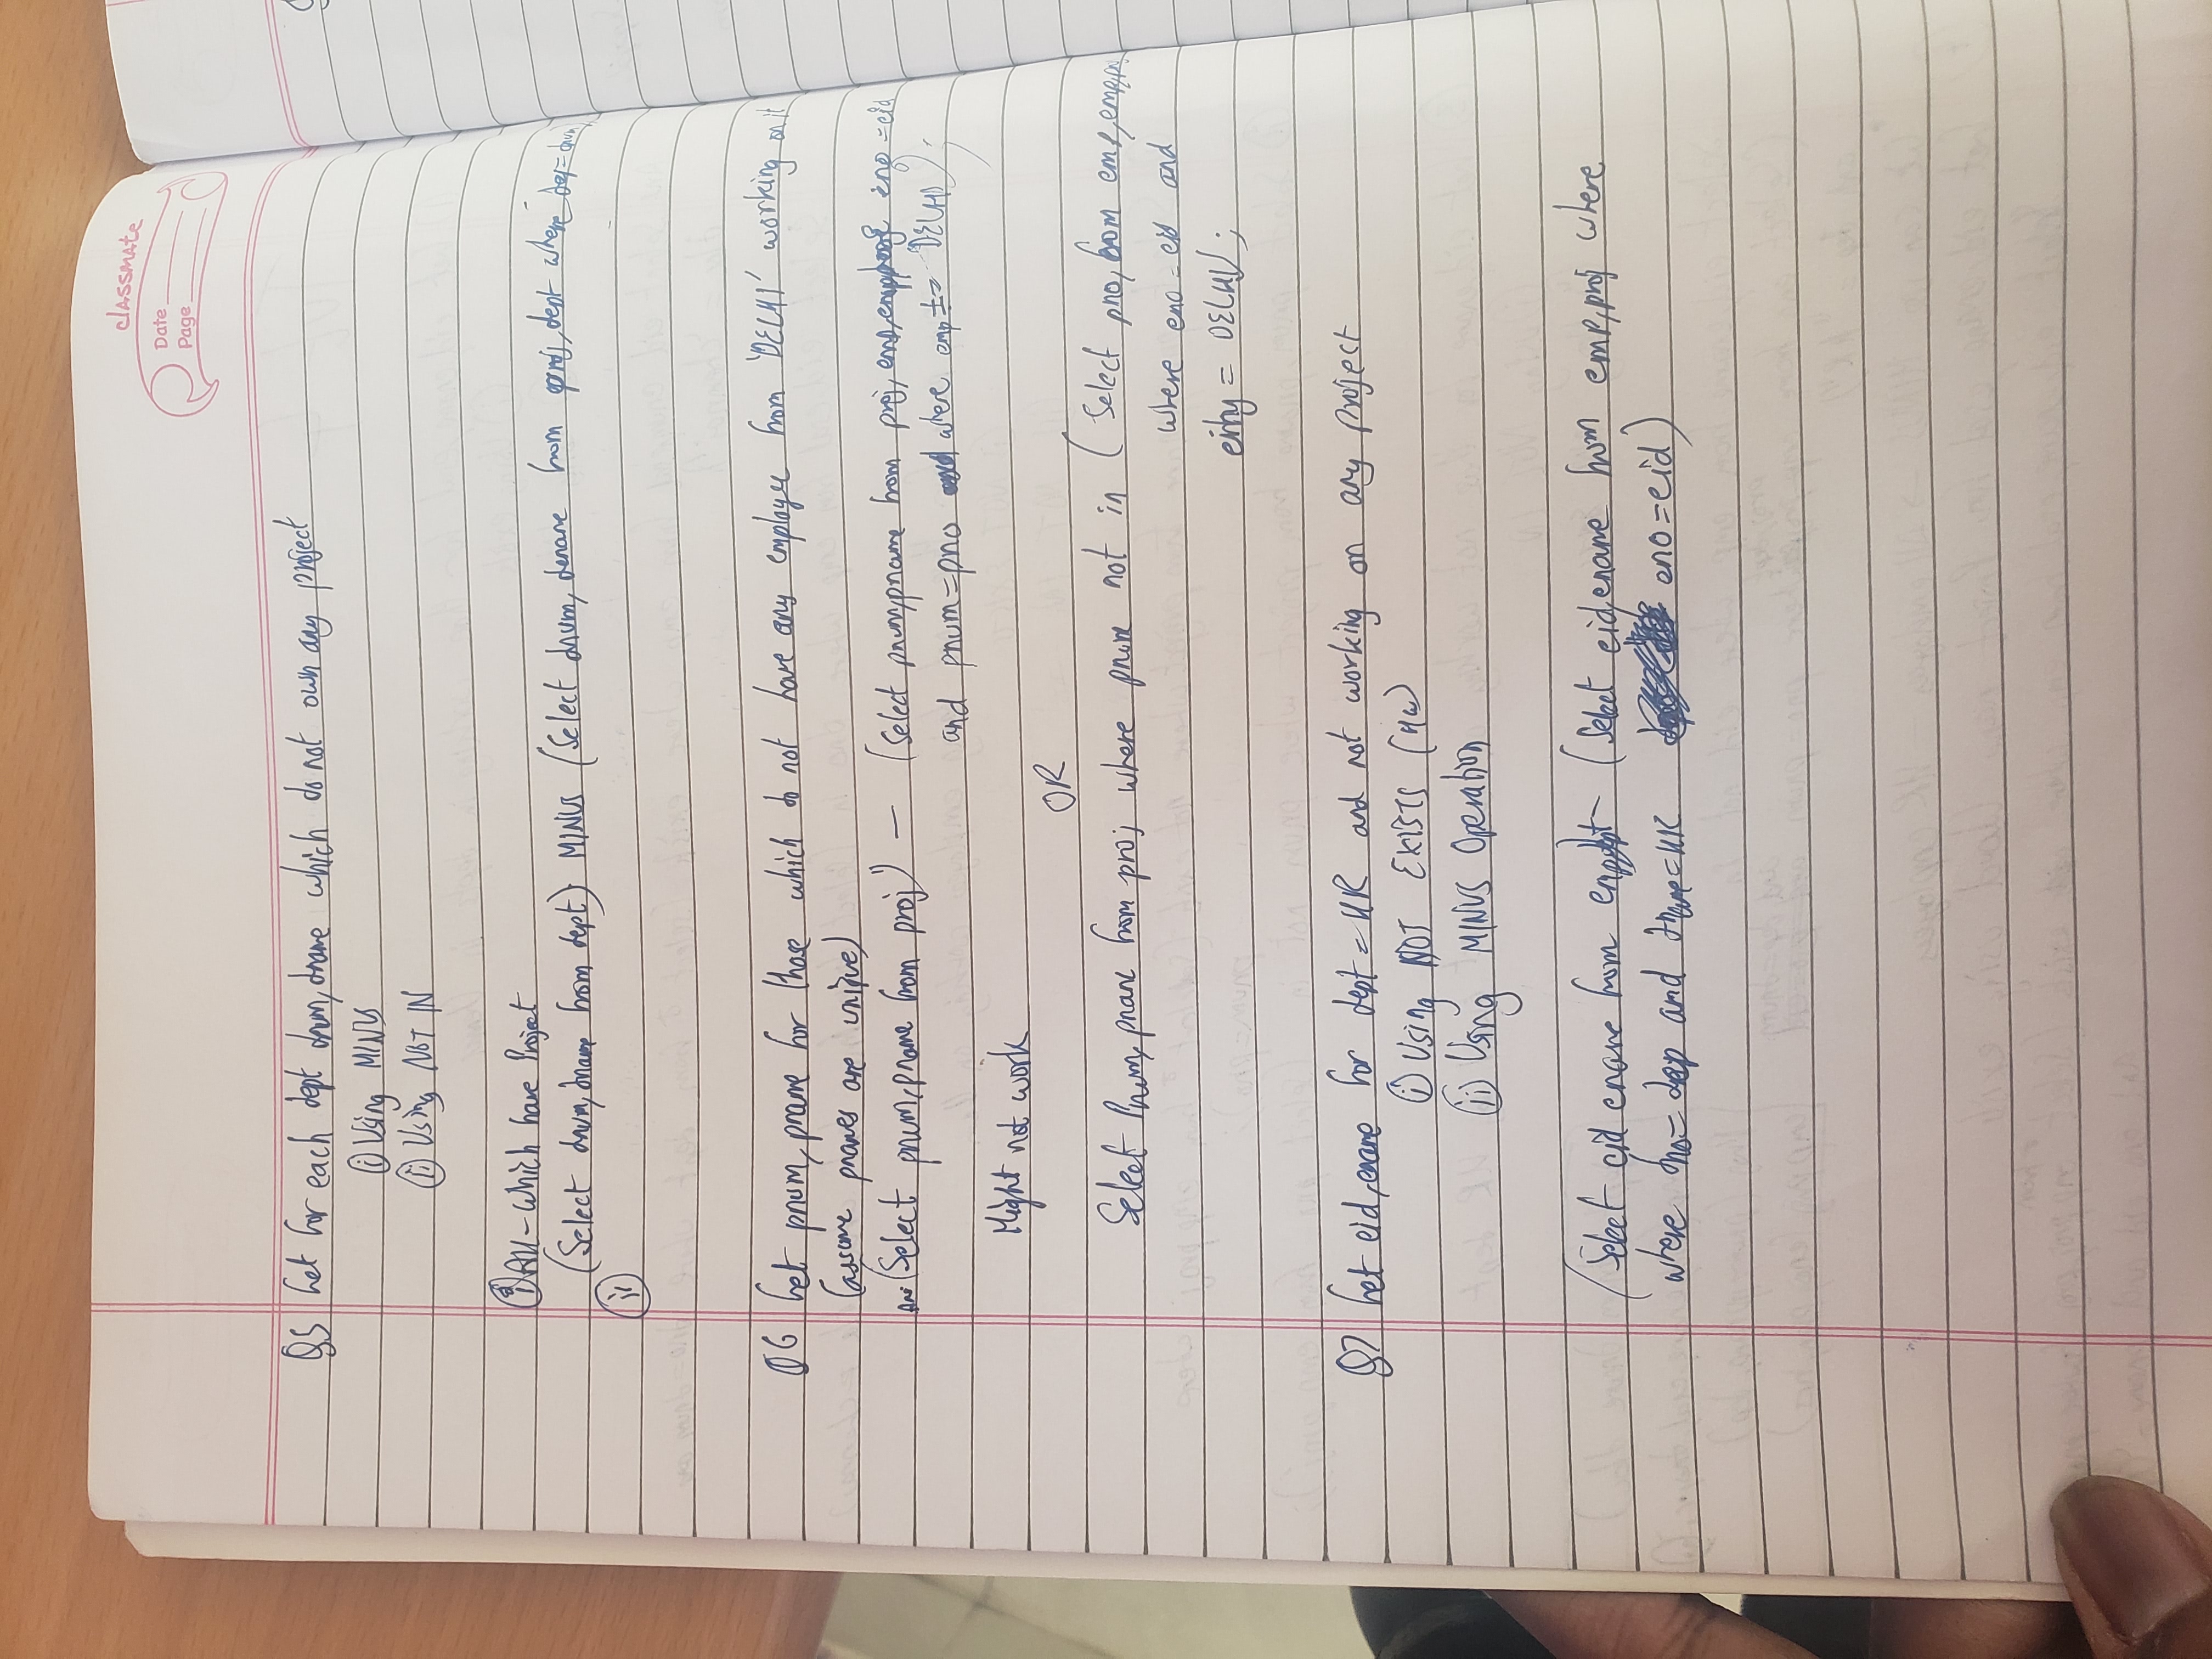 classmate
Date
Page
Q5 Get for each dept dnum, dname which do not own any project
(i) Using MINUS
(ii) Using NOT IN
(i) All - which have Project
(Select dnum, dname from dept) MINUS (Select dnum, dename from proj, dept where dep = dnum)
(ii)
Q6 Get pnum, pname for those which do not have any employee from 'DELHI' working on it
(assume pnames are unique)
Ans (Select pnum, pname from proj) - (Select pnum, pname from proj, emp, empproj eno = eid
and pnum = pno where emp = DELHI);
Might not work
OR
Select Pnum, pname from proj where pnum not in (Select pno, from emp, emp
where eno = eid and
DELHI);
Q7 Get eid, ename for dept = HR and not working on any project
(i) Using NOT EXISTS (HW)
(ii) Using MINUS Operation
(Select eid ename from - (Select eid, ename from emp, proj where
where dno = dep and dname = HR eno = eid)